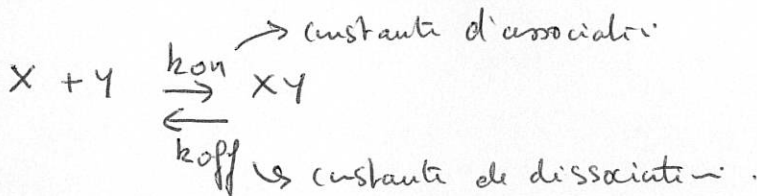 kon → constante d'association
X + Y ⇄ XY
koff ↳ constante de dissociation.